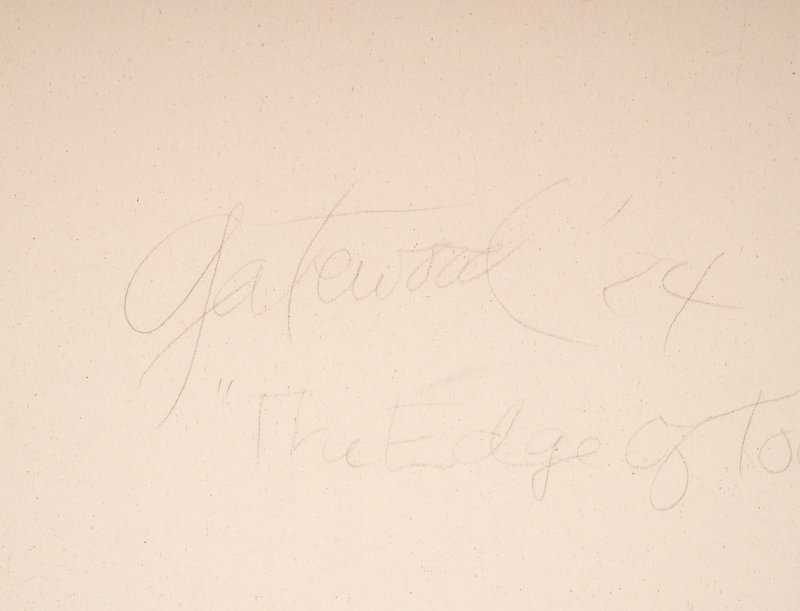 Gatewood '84
"The Edge of To